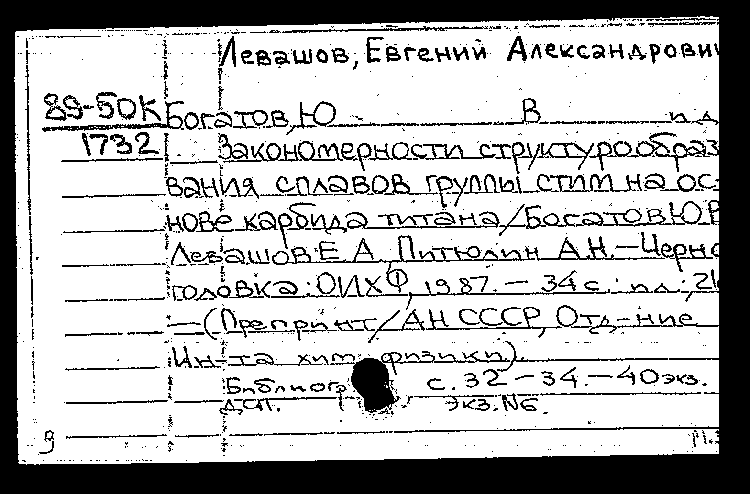 Левашов, Евгений Александрови
89-50К Богатов, Ю В пд
1732 Закономерности структурообраз
вания сплавов группы стим на ос-
нове карбида титана/Богатов Ю.В
Левашов Е А, Питюлин А.Н.—Черно
головка: ОИХФ, 1987.— 34 с.: ил.; 21
—(Препринт/АН СССР, Отд-ние
Ин-та хим физики).
Библиогр с. 32—34.—40 экз.
ДСП. Экз. N6.